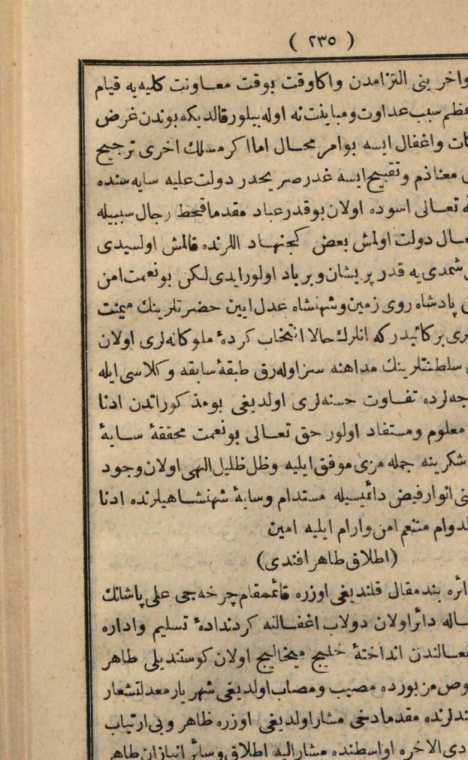 ( ٢٣٥ )
واخر بنی التزامدن واکاوقت بوقت معاونت کلیه‌یه قیام
عظم سبب عداوت ومباینت نه اوله بیلور قالدیکه بوندن غرض
واغفال ایسه بوامر محال اما اکر مسلك اخری ترجیح
معناذم وتقبیح ایسه غدر صریحدر دولت علیه سایه‌سنده
تعالی اسوده اولان بوقدر عباد مقدما قحط رجال سببیله
دولت اولمش بعض کجنهاد اللرنده قالمش اولسیدی
شمدی‌یه قدر پریشان وبرباد اولورایدی لکن بونعمت امن
پادشاه روی زمین وشهنشاه عدل ایین حضرتلرینك میمنت
برکاتیدرکه انلرك حالا انتخاب کردهٔ ملوکانه‌لری اولان
سلطنتلرینك مداهنه سزاوله‌رق طبقهٔ سابقه وکلاسی ایله
تفاوت حسنه‌لری اولدیغی بومذکوراتدن ادنا
معلوم ومستفاد اولور حق تعالی بونعمت محققهٔ سایهٔ
شکرینه جمله‌مزی موفق ایلیه وظل ظلیل الهی اولان وجود
انوار فیض دائمیسیله مستدام وسایهٔ شهنشاهیلرنده ادنا
متنعم امن وارام ایلیه امین
(اطلاق طاهر افندی)
بندمقال قلندیغی اوزره قائممقام چرخه‌جی علی پاشانك
دائر اولان دولاب اغفالنه کردندادهٔ تسلیم واداره
انداختهٔ خلیج اولان کوستندیلی طاهر
مزبورده مصیب ومصاب اولدیغی شهریار معدلتشعار
مقدما دخی مشار اولدیغی اوزره ظاهر وبی ارتیاب
الاخره اواسطنده مشارالیه اطلاق وسائر